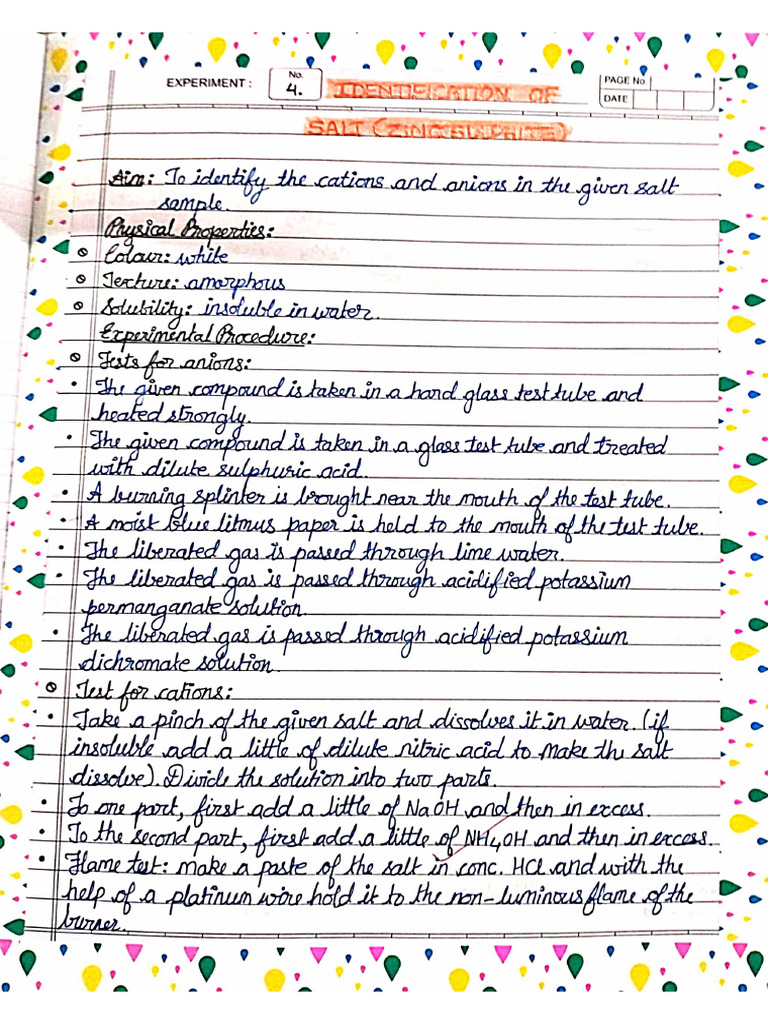 EXPERIMENT: No. 4. IDENTIFICATION OF PAGE No. DATE
SALT (ZINC SULPHITE)
Aim: To identify the cations and anions in the given salt
sample.
Physical Properties:
Colour: white
Texture: amorphous
Solubility: insoluble in water.
Experimental Procedure:
Tests for anions:
• The given compound is taken in a hard glass test tube and
heated strongly.
• The given compound is taken in a glass test tube and treated
with dilute sulphuric acid.
• A burning splinter is brought near the mouth of the test tube.
• A moist blue litmus paper is held to the mouth of the test tube.
• The liberated gas is passed through lime water.
• The liberated gas is passed through acidified potassium
permanganate solution.
• The liberated gas is passed through acidified potassium
dichromate solution.
Test for cations:
• Take a pinch of the given salt and dissolves it in water. (if
insoluble add a little of dilute nitric acid to make the salt
dissolve). Divide the solution into two parts.
• To one part, first add a little of NaOH and then in excess.
• To the second part, first add a little of NH₄OH and then in excess.
• Flame test: make a paste of the salt in conc. HCl and with the
help of a platinum wire hold it to the non-luminous flame of the
burner.